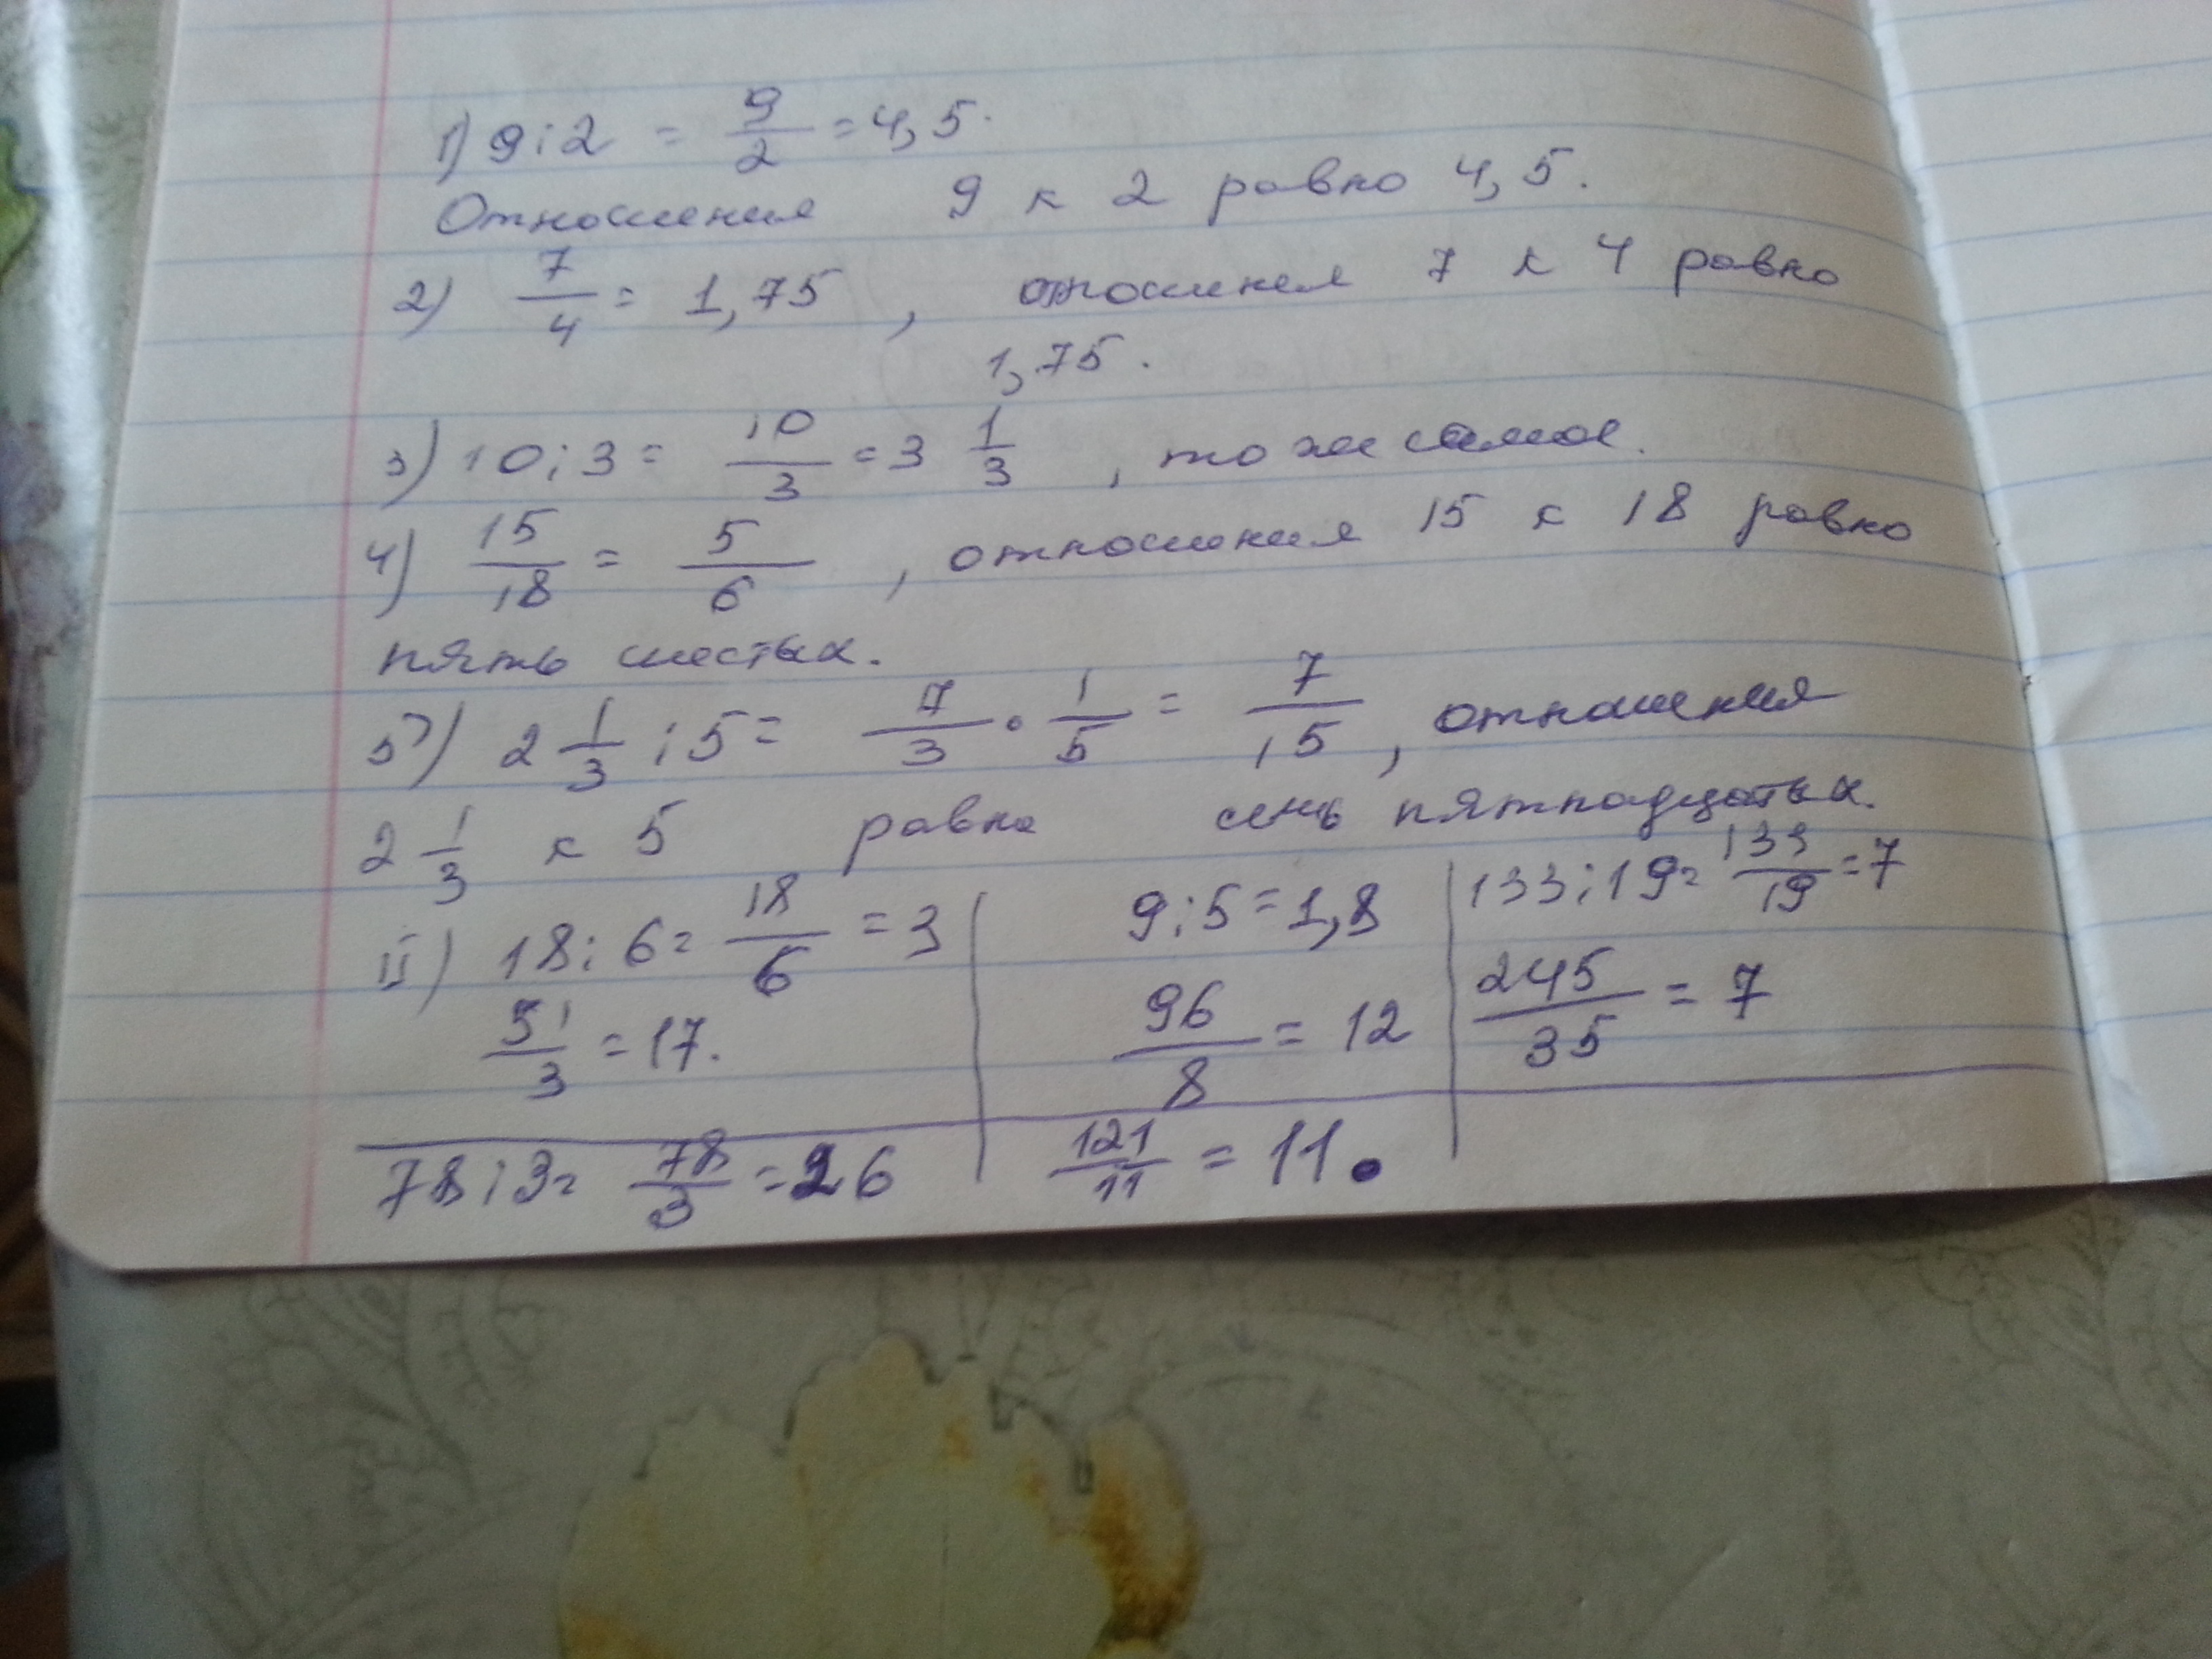 1) 9:2 = 9/2 = 4,5.
Отношения 9 к 2 равно 4,5.
2) 7/4 = 1,75 , отношения 7 к 4 равно
1,75.
3) 10:3 = 10/3 = 3 1/3 , то же самое.
4) 15/18 = 5/6 , отношения 15 к 18 равно
пять шестых.
5) 2 1/3 : 5 = 7/3 · 1/5 = 7/15 , отношения
2 1/3 к 5 равно семь пятнадцатых.
II) 18:6 = 18/6 = 3
51/3 = 17.
9:5 = 1,8
96/8 = 12
133:19 = 133/19 = 7
245/35 = 7
78:3 = 78/3 = 26
121/11 = 11.